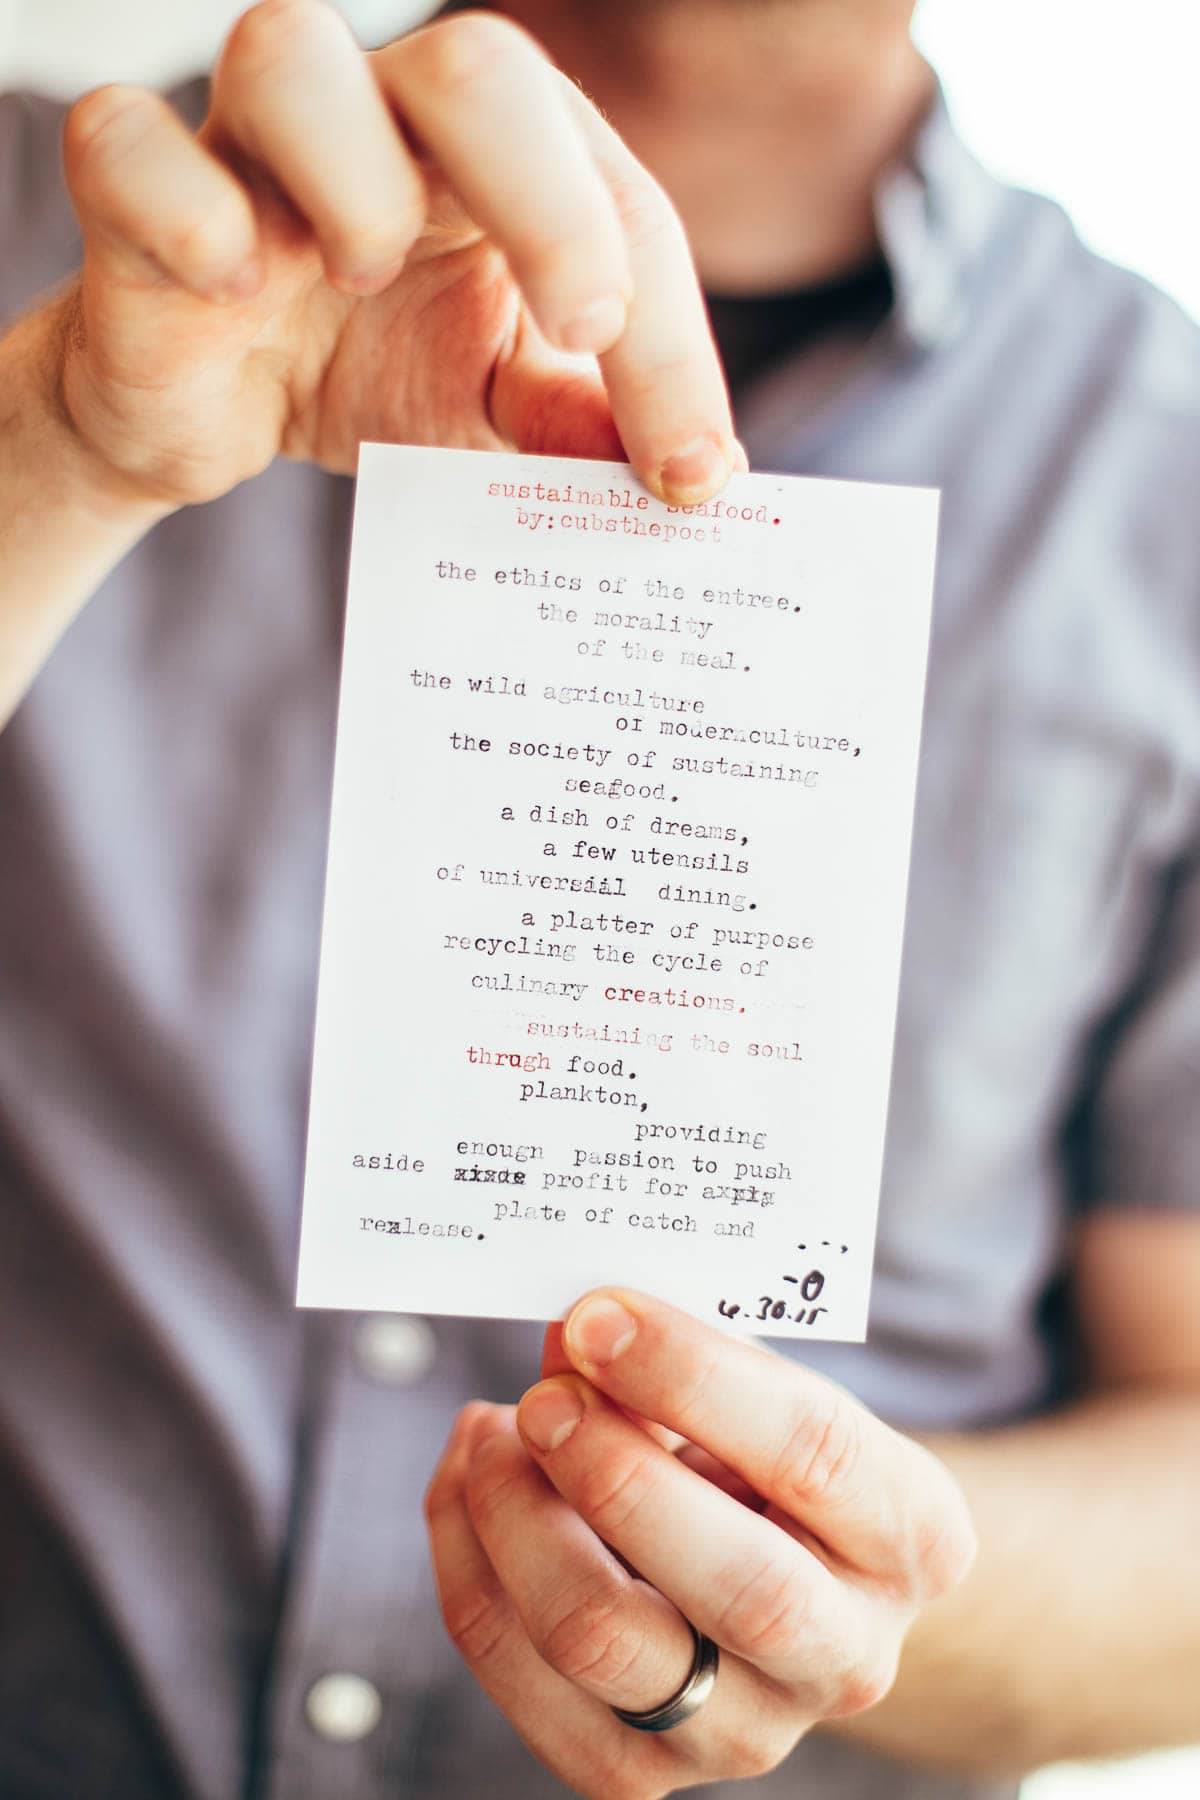 sustainable seafood.
by:cubsthepoet
the ethics of the entree.
the morality
of the meal.
the wild agriculture
of modernculture,
the society of sustaining
seafood.
a dish of dreams,
a few utensils
of universal dining.
a platter of purpose
recycling the cycle of
culinary creations.
sustaining the soul
thrugh food.
plankton,
providing
enough passion to push
aside profit for a
plate of catch and
release.
-O
4.30.15